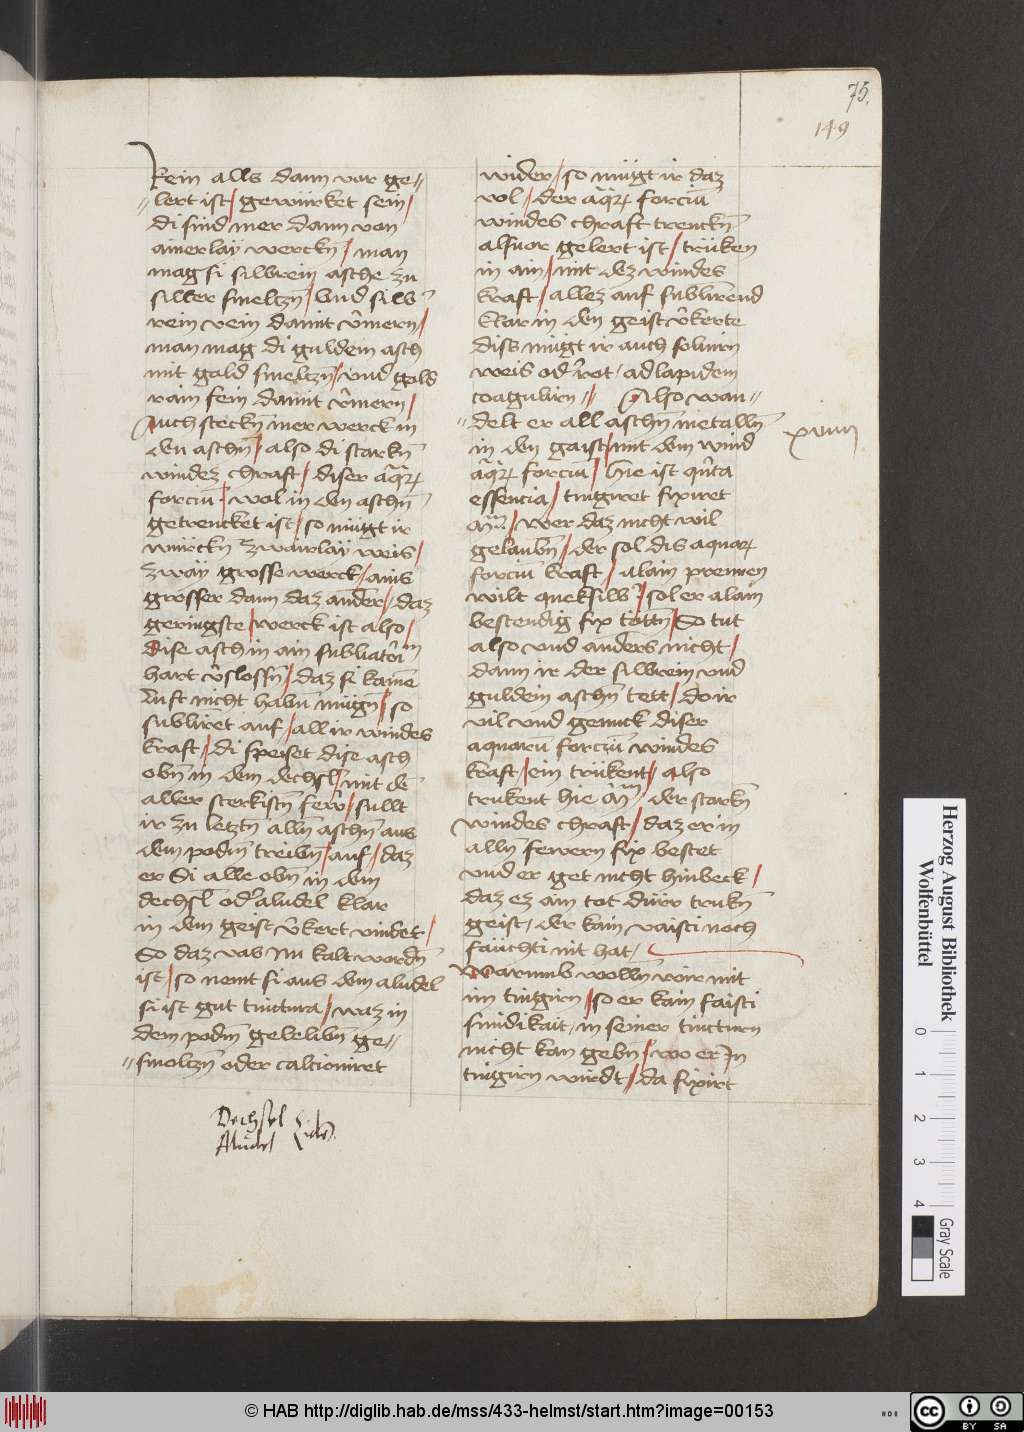 75.
149
Rein alls dann vor ge〃
〃lert ist / gewürket sein /
di sind mer dann von
ainerlaÿ werckn̄ / man
mag si silbrein asche zu
silber smeltzn̄ / vnd silb̄
rein vein damit v̄mern /
man mag di guldein asch
mit gold smeltzn̄ / vnd gold
rain fein damit v̄mern /
Auch steckn̄ mer werck in
den aschn̄ / also di starkn̄
windez chraft / diser aq̄ꝝ
forciū / wol in den aschn̄
getrencket ist / so mügt ir
würckn̄ zwairlaÿ weis /
zwaÿ grosse werck / ains
grosser dann daz ander / daz
geringste / werck ist also /
Dise asch in ain subliatori͞m
hart v̄slossn̄ / daz si kaine
luft nicht habn̄ mügn̄ / so
sublīret auf / all ir windes
kraft / di speiset dise asch
obn̄ in dem dechsl / mit dē
aller sterkistn̄ fewr / süllt
ir zu letztn̄ alln̄ aschn̄ aus
dem podm̄ treibn̄ / auf / daz
er Si alle obn̄ in dem
dechsl̄ od̄ aludel klar
in dem geist v̄kert vindet /
So daz vas Nu kalt wordn̄
ist / so nemt si aus dem aludel
si ist gut tinctura / waz in
dem podm̄ gebelibn̄ ge〃
〃smoltzn̄ oder calcioniret
Dechsel
Aludel
wider / so mügt ir daz
vol / der aq̄ꝝ forciū
windes chraft trenckn̄
alsuor gelert ist / trüken
in ain / mit dez windes
kraft / allez auf sublirend
klar in den geist v̄kerte
diss mügt ir auch soluirn
weis od̄ rot / ad lapidem
coagulirn 〃 Also wan〃
〃delt er all aschn̄ metalln̄
in den gaist / mit dem wind
aq̄ꝝ forciū / hie ist qn̄ta
essencia / tingiret fixiret
/ wer daz nicht wil
gelaubn̄ / der sol dis aquaꝝ
forciū kraft / alain premen
wilt queksilb̄ / sol er alain
bestendig fix töttn̄ / So tut
also vnd anders nicht /
dann ir der silbrein vnd
guldein aschn̄ tett / do ir
vil vnd genuck diser
aquarū forciū windes
kraft / ein trükent / also
trukent hie / der starkn̄
windes chraft / daz er in
alln̄ fewern fix bestet
vnd er get nicht hinbeck /
daz ez ain tot dürr trukn̄
geist / der kain vaisti noch
fäüchti nit hat /
Warumb wolln̄ wir mit
im tingirn / so er kain faisti
smidikait / in seiner tincturn
nicht kan gebn̄ / wo er In
tingirn wirdt / da fixirt
xviiij
Herzog August Bibliothek
Wolfenbüttel
0 1 2 3 4
Gray Scale
© HAB http://diglib.hab.de/mss/433-helmst/start.htm?image=00153
cc BY SA